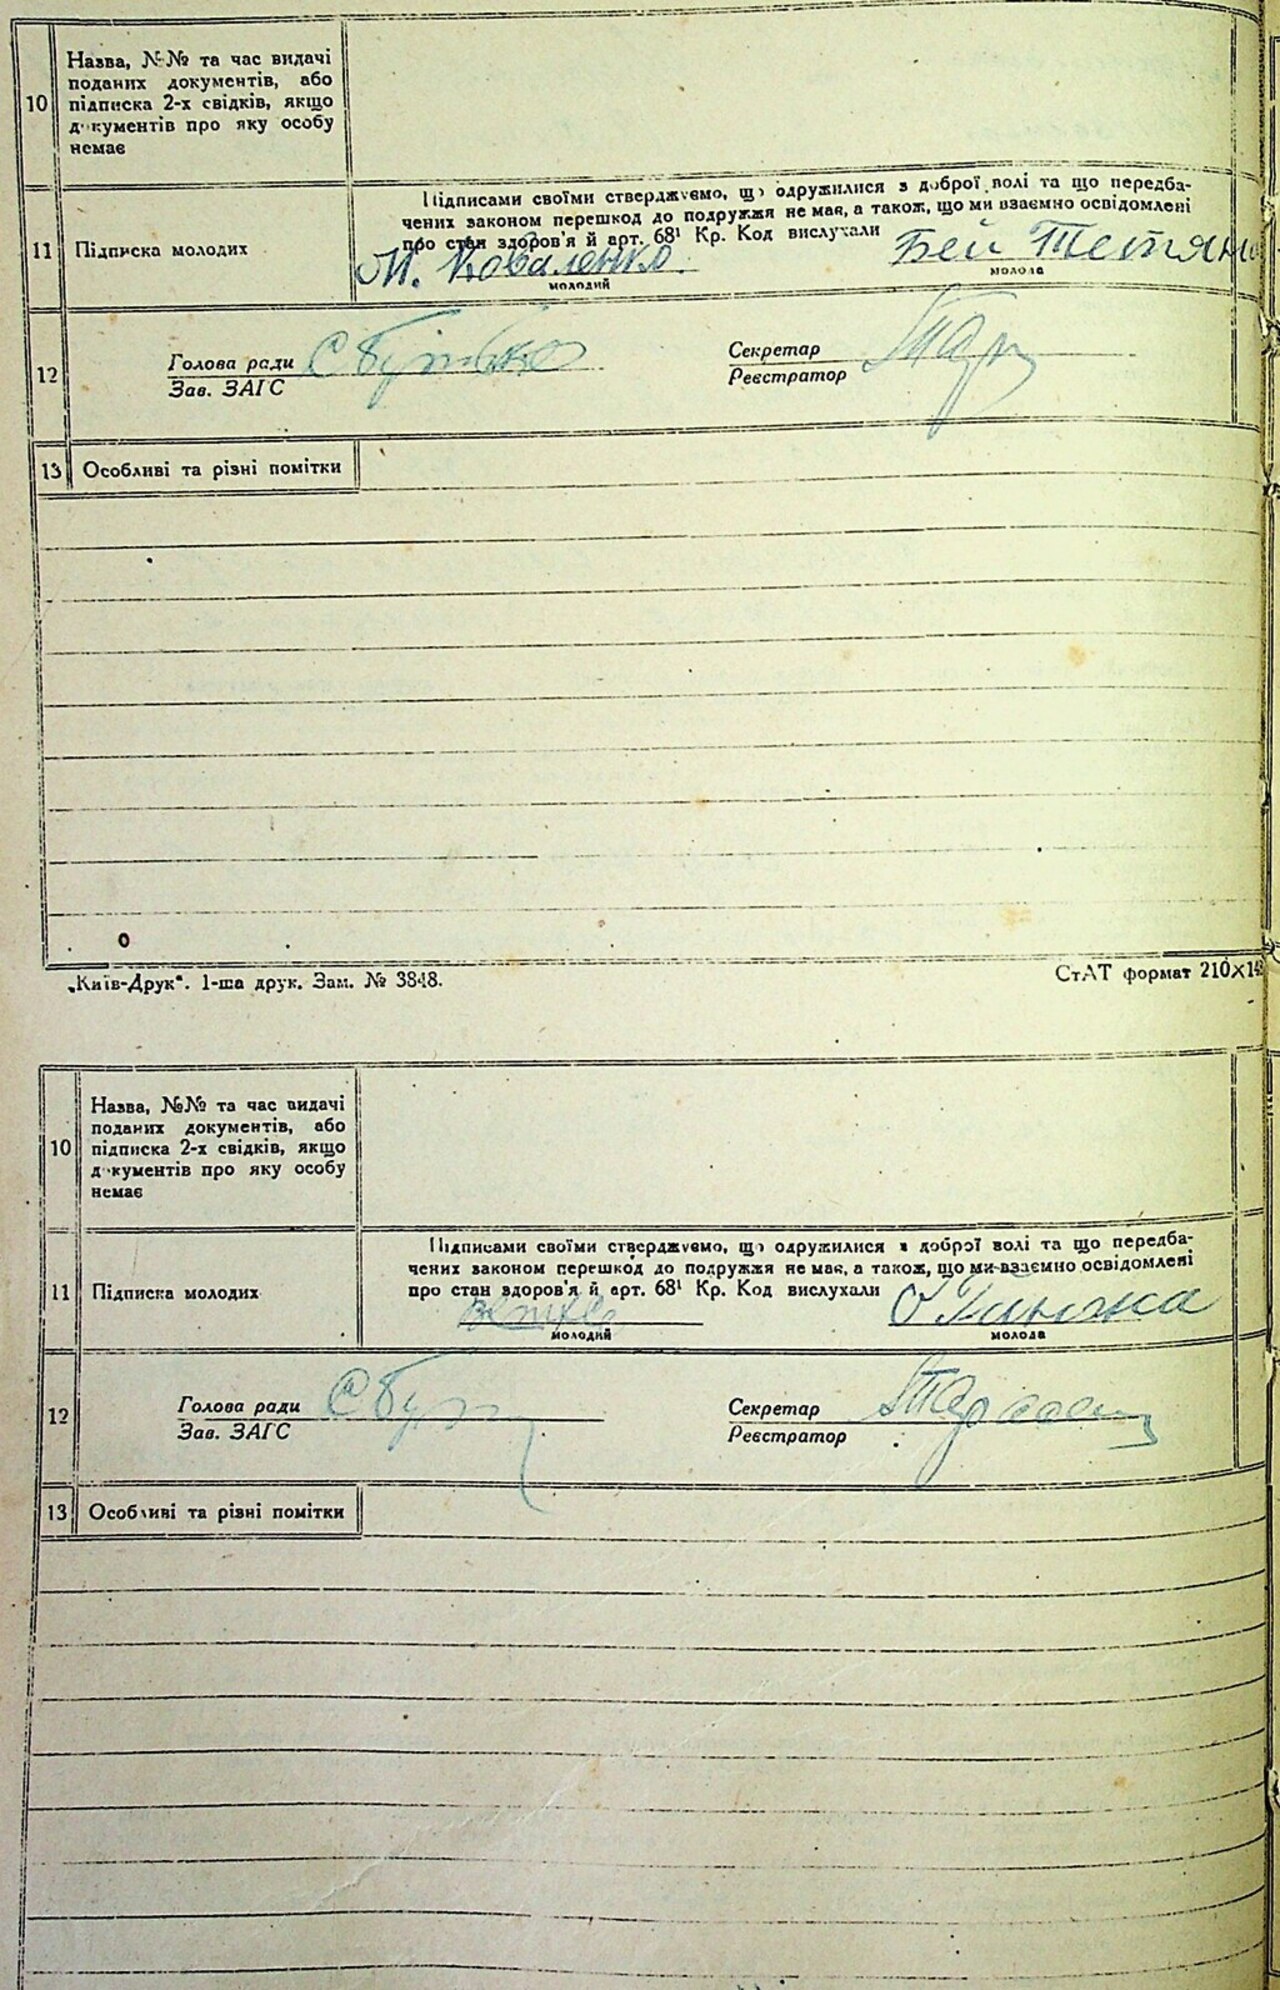 10
Назва, №№ та час видачі
поданих документів, або
підписка 2-х свідків, якщо
документів про яку особу
немає
11
Підписка молодих
Підписами своїми стверджуємо, що одружилися з доброї волі та що передба-
чених законом перешкод до подружжя не має, а також, що ми взаємно освідомлені
про стан здоров'я й арт. 68¹ Кр. Код вислухали
М. Коваленко
Бей Тетяна
молодий
молода
12
Голова ради
Зав. ЗАГС
Секретар
Реєстратор
13
Особливі та різні помітки
„Київ-Друк". 1-ша друк. Зам. № 3848.
СтАТ формат 210×148
10
Назва, №№ та час видачі
поданих документів, або
підписка 2-х свідків, якщо
документів про яку особу
немає
11
Підписка молодих
Підписами своїми стверджуємо, що одружилися з доброї волі та що передба-
чених законом перешкод до подружжя не має, а також, що ми взаємно освідомлені
про стан здоров'я й арт. 68¹ Кр. Код вислухали
молодий
молода
12
Голова ради
Зав. ЗАГС
Секретар
Реєстратор
13
Особливі та різні помітки